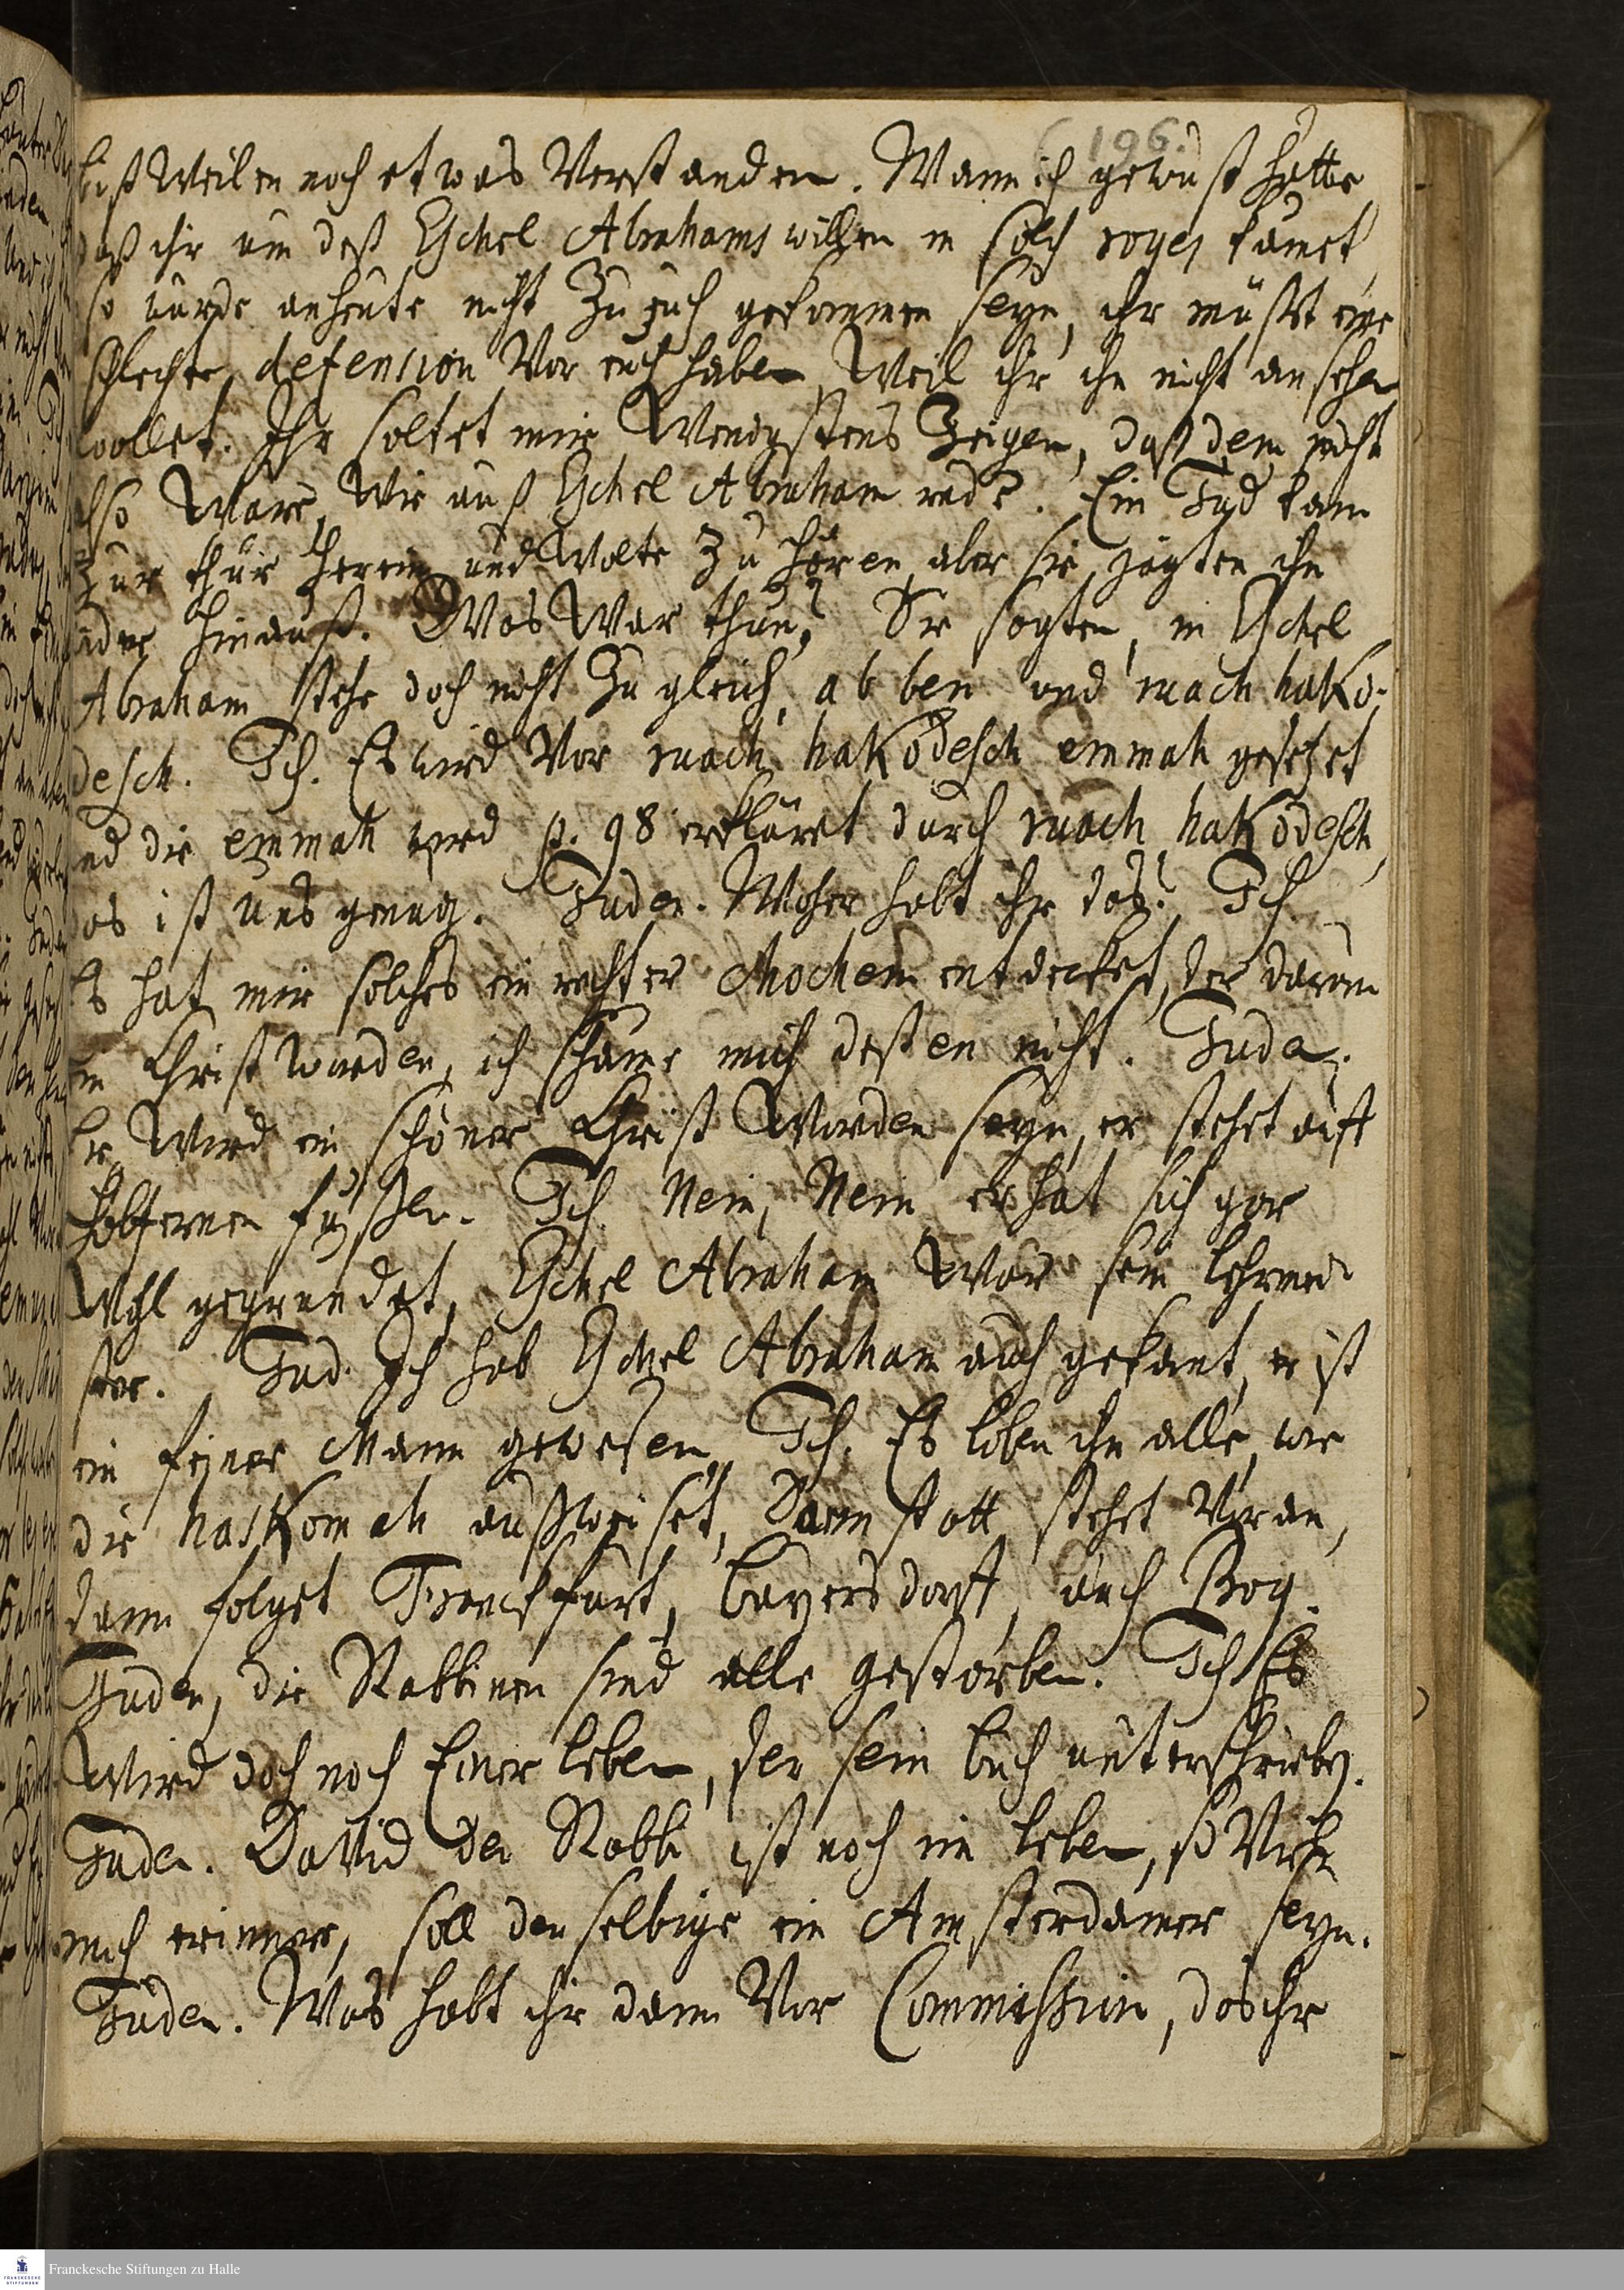 (196.
bißweilen noch etwas verstanden. Wann ich gewust hette
daß ihr um deß Eschel Abrahams willen in solch roges kämet
so würde anheute nicht zu euch gekommen seyn, ihr müsst eine
schlechte defension vor euch haben, weil ihr ihn nicht ansehen
wollet. Ihr soltet mir wenigstens zeigen, daß dem nicht
also wäre, wie auß Eschel Abraham rede. Ein Jud kam
zur thür herein und wolte zu hören, aber sie jagten ihn
wider hinauß. Was war thun? Sie sagten, in Eschel
Abraham stehe doch nicht zugleich, ab ben und ruach hako-
desch. Ich. Es wird vor ruach hakodesch emmah gesetzet
und die emmah wird p. 98 erkläret durch ruach hakodesch,
das ist uns genug. Juden. Woher habt ihr das? Ich
Es hat mir solches ein rechter Chochem entdecket, der darum
ein Christ worden, ich schäme mich deßen nicht. Juden.
Er wird ein schöner Christ worden seyn, er stehet auff
füßen. Ich. Nein, Nein er hat sich gar
wohl gegründet, Eschel Abraham war sein Lehrmei-
ster. Jud. Ich hab Eschel Abraham auch gekant, er ist
ein feiner Mann gewesen. Ich. Es loben ihn alle, wie
die haskomah außweiset, Darmstatt stehet voran,
dann folget Franckfurt, Bayersdorff, auch
Juden, die Rabbinen sind alle gestorben. Ich Es
wird doch noch Einer leben, der sein buch unterschrieben.
Juden. David der Rabbi ist noch im leben, so viel
mich erinnere, soll derselbige ein Amsterdamer seyn.
Juden. Was habt ihr dann vor Commission, das ihr
Franckesche Stiftungen zu Halle